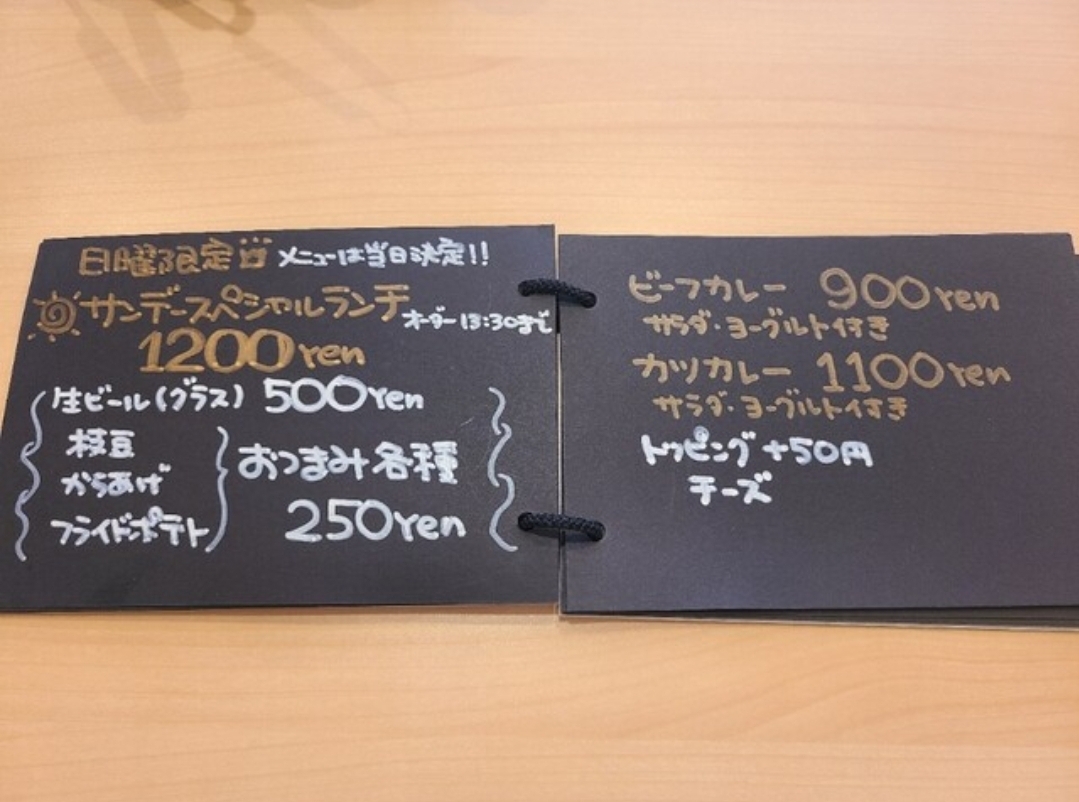 日曜限定 メニューは当日決定!!
サンデースペシャルランチ オーダー13:30まで
1200yen
生ビール(グラス) 500yen
枝豆
からあげ
フライドポテト
おつまみ各種
250yen
ビーフカレー 900yen
サラダ・ヨーグルト付き
カツカレー 1100yen
サラダ・ヨーグルト付き
トッピング +50円
チーズ